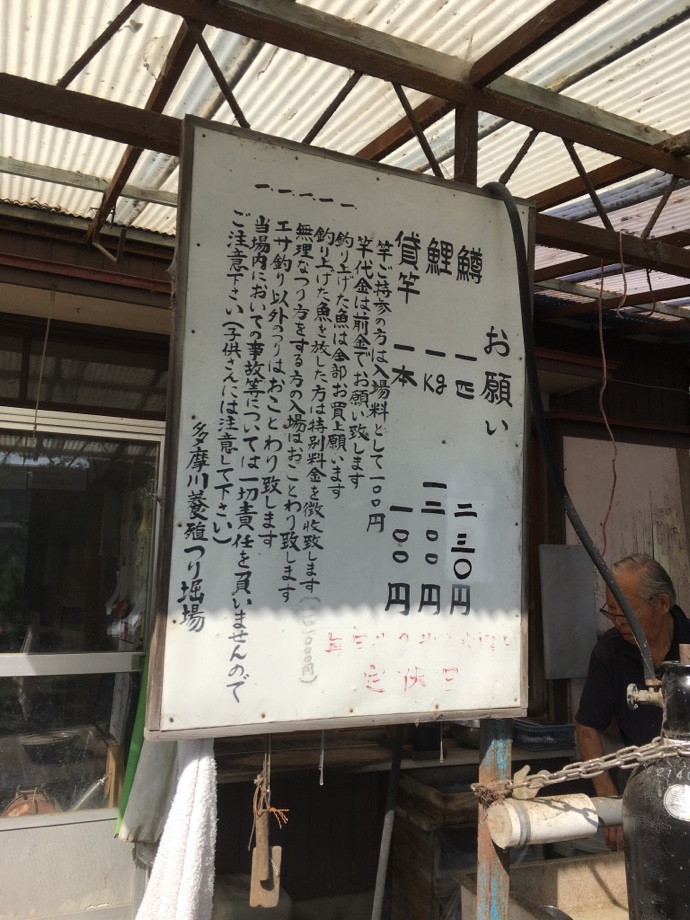 お願い
鱒 一匹 二三〇円
鯉 一Kg 一三〇〇円
貸竿 一本 一〇〇円
竿ご持参の方は入場料として一〇〇円
一 竿代金は前金でお願い致します
一 釣り上げた魚は全部お買上願います
一 釣り上げた魚を放した方は特別料金を徴收致します
一 無理なつり方をする方の入場はおことわり致します
一 エサ釣り以外のつりはおことわり致します
当場内においての事故等については一切責任を負いませんので
ご注意下さい(子供さんには注意して下さい)
多摩川養殖つり堀場
定休日